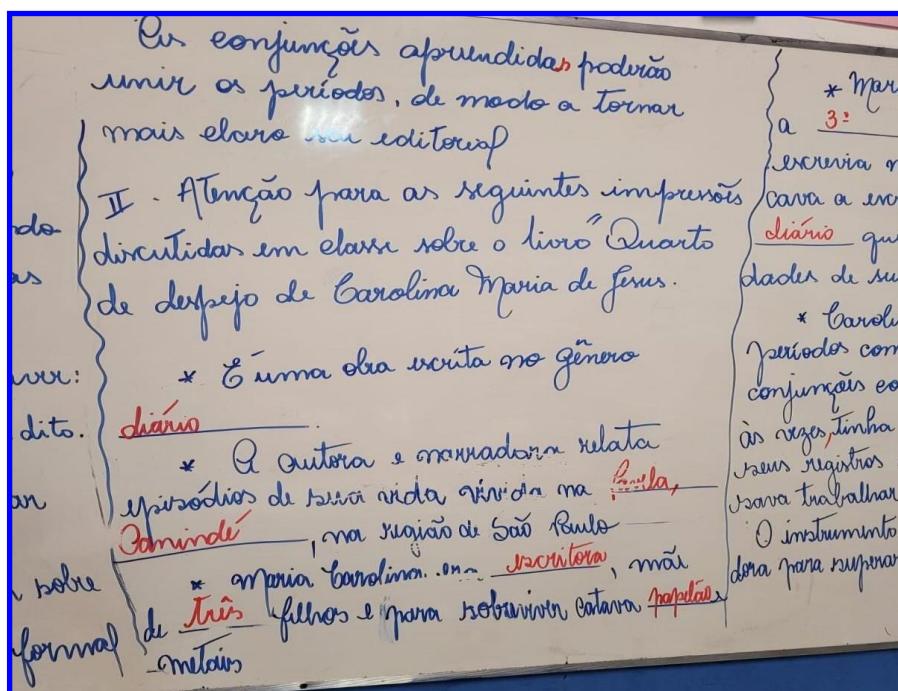 do
as
ver:
dito.
ar
sobre
formal
As conjunções aprendidas poderão
unir os períodos, de modo a tornar
mais claro seu editorial
II. Atenção para as seguintes impressões
discutidas em classe sobre o livro "Quarto
de despejo de Carolina Maria de Jesus.
* É uma obra escrita no gênero
diário.
* A autora e narradora relata
episódios de sua vida vivida na favela,
Canindé, na região de São Paulo
* Maria Carolina era escritora, mãe
de três filhos e para sobreviver catava papelão
metais
* Mar
a 3ª
escrevia
cava a escr
diário qu
dades de su
* Carol
períodos com
conjunções co
às vezes, tinha
seus registros
sava trabalhar
O instrumento
dora para superar